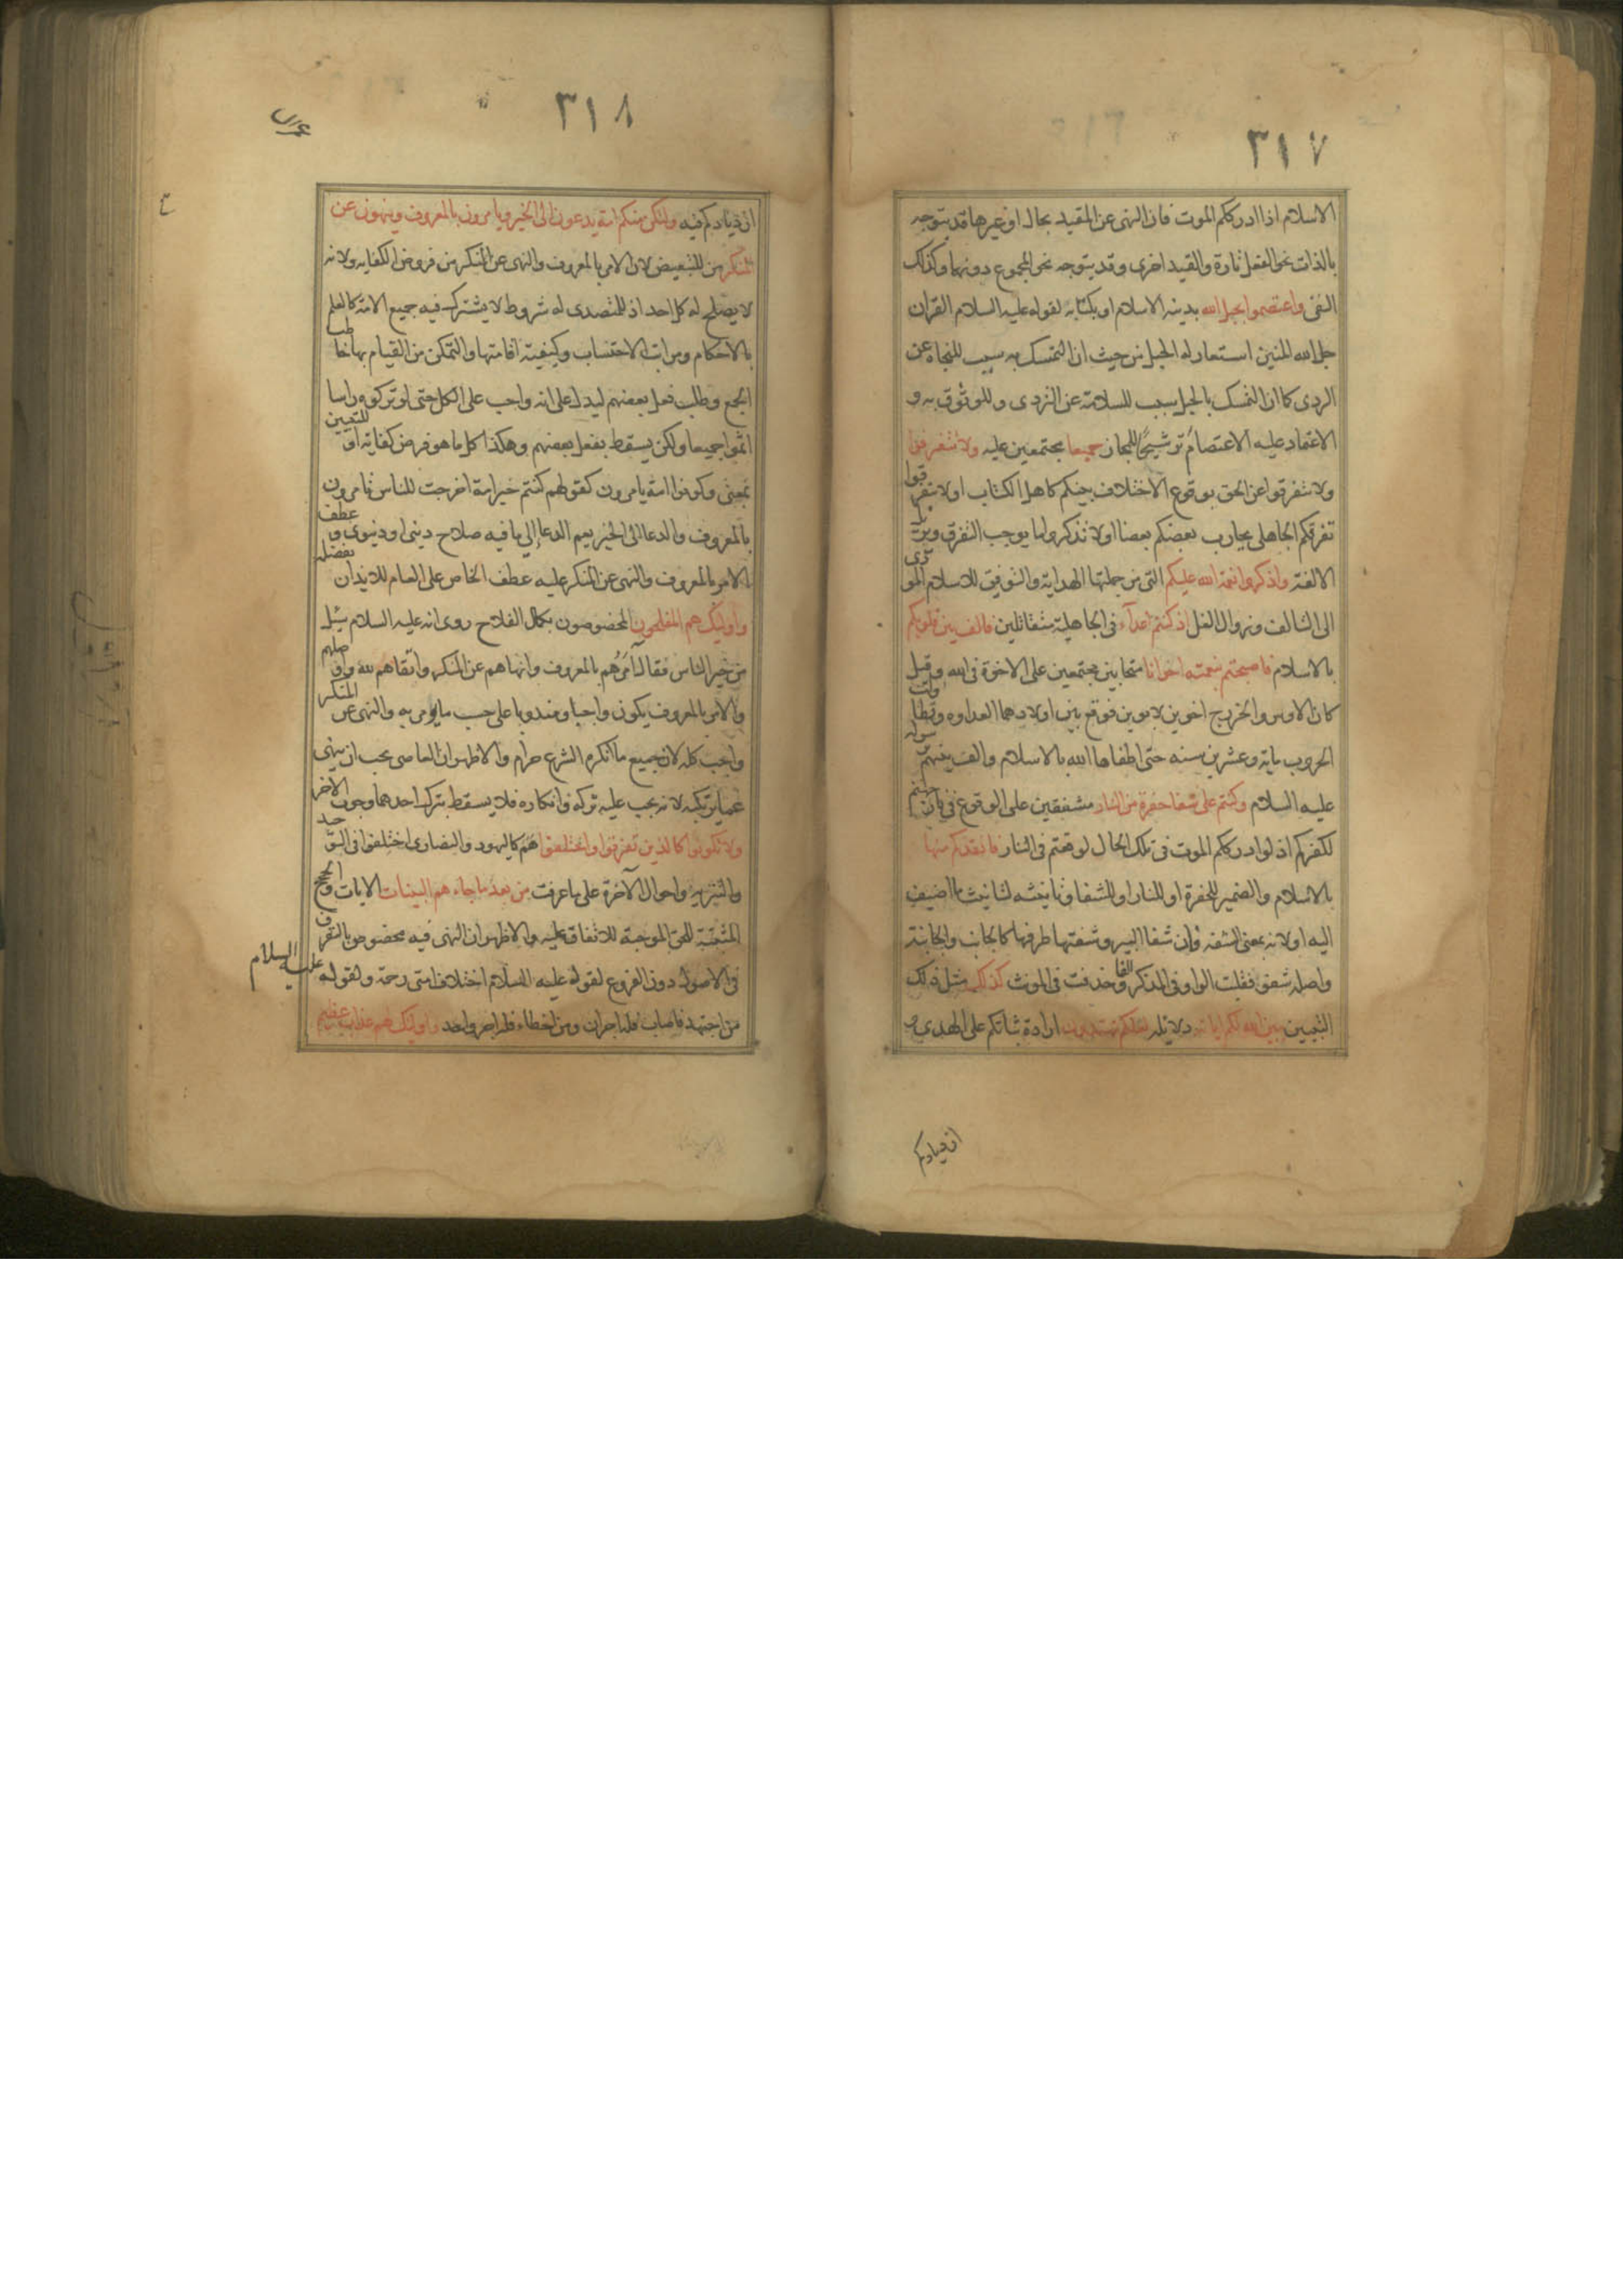 ٣١٧
الاسلام اذا ادرككم الموت فان النهى عن المقيد بحال او غيرها قد يتوجه
بالذات نحو الفعل تارة والقيد اخرى وقد يتوجه نحو المجموع دونهما وكذلك
النفى واعتصموا بحبل الله بدينه الاسلام او بكتابه لقوله عليه السلام القران
حبل الله المتين استعار له الحبل من حيث ان التمسك به سبب للنجاه عن
الردى كما ان التمسك بالحبل سبب للسلامة عن التردى وللوثوق به و
الاعتماد عليه الاعتصام ترشيحًا للمجاز جميعا مجتمعين عليه ولا تفرقوا
ولا تتفرقوا عن الحق بوقوع الاختلاف بينكم كاهل الكتاب او لا تتفرقوا
تفرقكم الجاهلى يحارب بعضكم بعضا او لا تذكروا ما يوجب التفرق ويزيل
الالفة واذكروا نعمة الله عليكم التى من جملتها الهداية والتوفيق للاسلام المودى
الى التالف وزوال الغل اذ كنتم اعدآء فى الجاهلية متقاتلين فالف بين قلوبكم
بالاسلام فاصبحتم بنعمته اخوانا متحابين مجتمعين على الاخوة فى الله وقيل
كان الاوس والخزرج اخوين لابوين فوقع بين اولادهما العداوه وتطاولت
الحروب ماية وعشرين سنه حتى اطفاها الله بالاسلام والف بينهم برسوله
عليه السلام وكنتم على شفا حفرة من النار مشفقين على الوقوع فى نار جهنم
لكفركم اذ لو ادرككم الموت فى تلك الحال لوقعتم فى النار فانقذكم منها
بالاسلام والضمير للحفرة او للنار او للشفا وتانيثه لتانيث ما اضيف
اليه او لانه بمعنى الشفه فان شفا البير وشفتها طرفها كالجانب والجانبة
واصله شفو فقلبت الواو فى المذكر الفا وحذفت فى المونث كذلك مثل ذلك
التبيين يبين الله لكم اياته دلايله لعلكم تهتدون ارادة ثباتكم على الهدى و
ازديادكم
٣١٨
ازديادكم فيه ولتكن منكم امة يدعون الى الخير ويامرون بالمعروف وينهون عن
المنكر من للتبعيض لان الامر بالمعروف والنهى عن المنكر من فروض الكفايه ولانه
لا يصلح له كل احد اذ للمتصدى له شروط لا يشترك فيه جميع الامة كالعلم
بالاحكام ومراتب الاحتساب وكيفية اقامتها والتمكن من القيام بها خاطب
الجمع وطلب فعل بعضهم ليدل على انه واجب على الكل حتى لو تركوه راسا
اثموا جميعا ولكن يسقط بفعل بعضهم وهكذا كل ما هو فرض كفاية او للتبيين
بمعنى وكونوا امة يامرون كقولهم كنتم خير امة اخرجت للناس تامرون
بالمعروف والدعا الى الخير يعم الدعا إلى ما فيه صلاح دينى او دنيوى وعطف
الامر بالمعروف والنهى عن المنكر عليه عطف الخاص على العام للايذان بفضله
واوليك هم المفلحون المخصوصون بكمال الفلاح روى انه عليه السلام سئل
من خير الناس فقال آمرهم بالمعروف وانهاهم عن المنكر واتقاهم لله واوصلهم
والامر بالمعروف يكون واجبا ومندوبا على حسب ما يومر به والنهى عن المنكر
واجب كله لان جميع ما انكره الشرع حرام والاظهر ان العاصى يجب ان ينهى
عما يرتكبه لانه يجب عليه تركه وانكاره فلا يسقط بترك احدهما وجوب الاخر
ولا تكونوا كالذين تفرقوا واختلفوا هم كاليهود والنصارى اختلفوا فى التوحيد
والتنزيه واحوال الآخرة على ما عرفت من بعد ما جاءهم البينات الايات والحجج
المثبتة للحق الموجبة للاتفاق عليه والاظهر ان النهى فيه مخصوص بالتفرق
فى الاصول دون الفروع لقوله عليه السلام اختلاف امتى رحمة ولقوله عليه السلام
من اجتهد فاصاب فله اجران ومن اخطاء فله اجر واحد واوليك هم عذاب عظيم